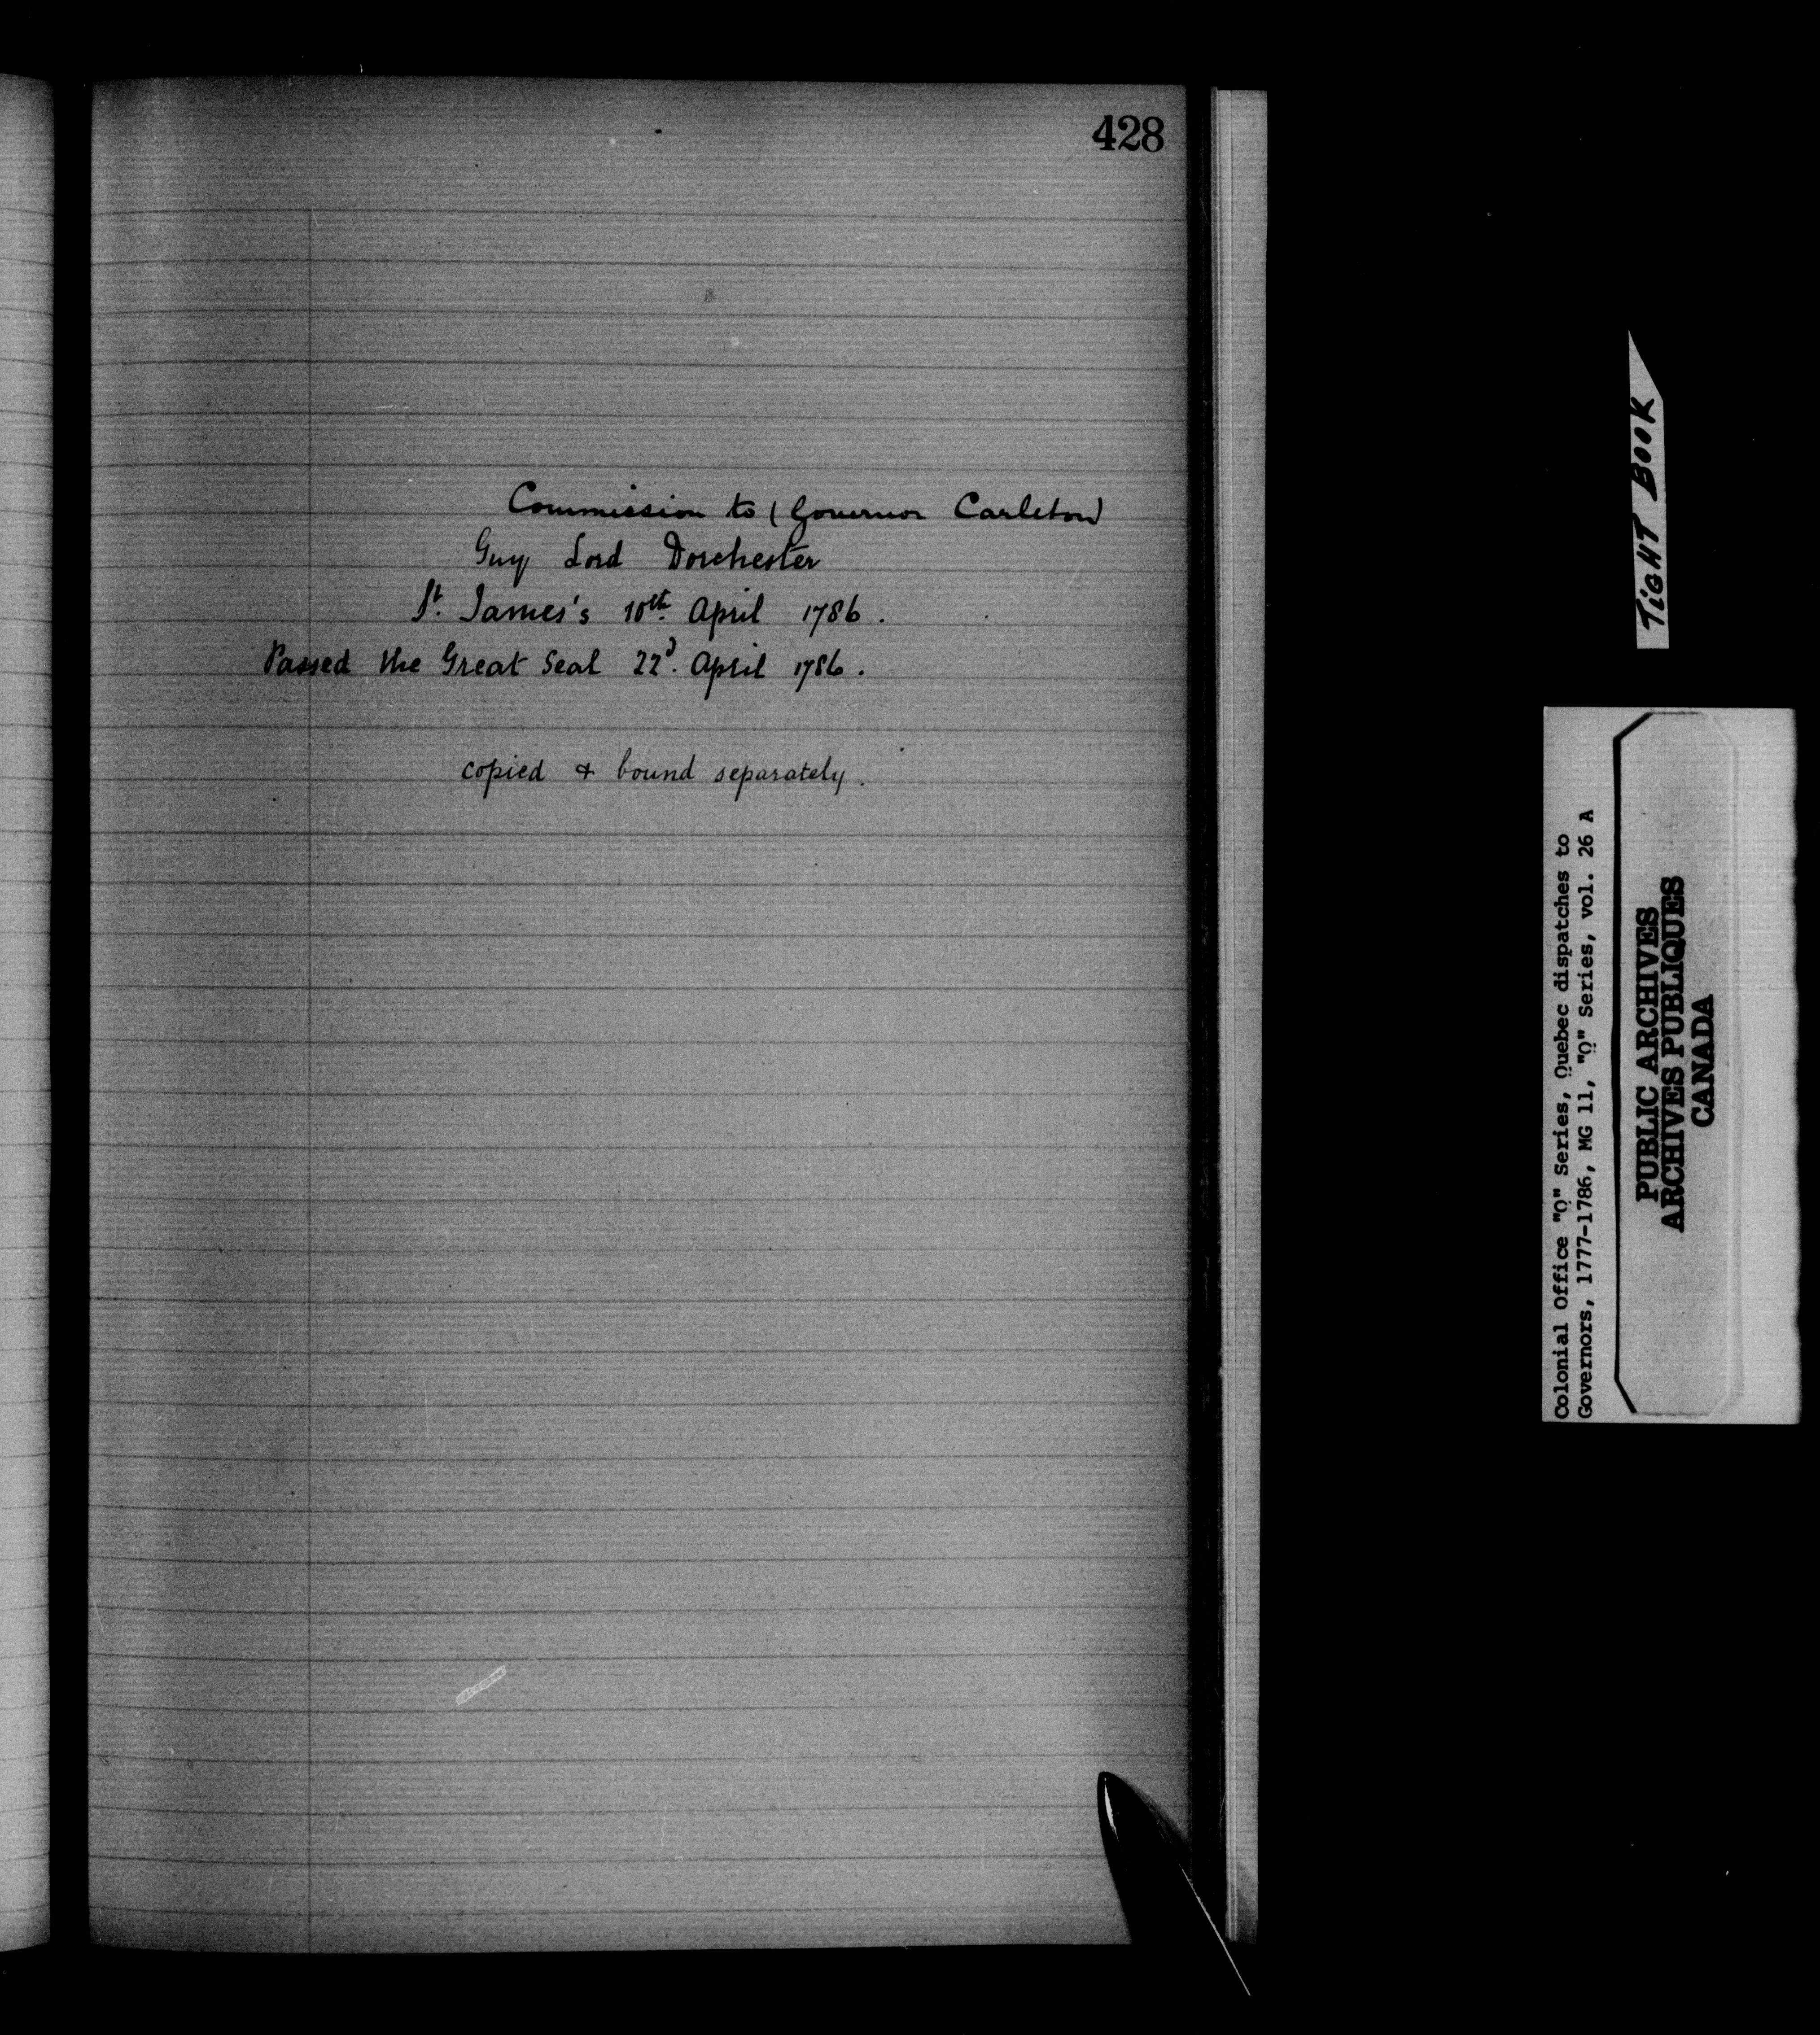 428
Commission to (Governor Carleton)
Guy Lord Dorchester
St. James's 10th April 1786.
Passed the Great Seal 22d. April 1786.
copied & bound separately.
TiGHT BOOK
Colonial Office "Q" Series, Quebec dispatches to
Governors, 1777-1786, MG 11, "Q" Series, vol. 26 A
PUBLIC ARCHIVES
ARCHIVES PUBLIQUES
CANADA